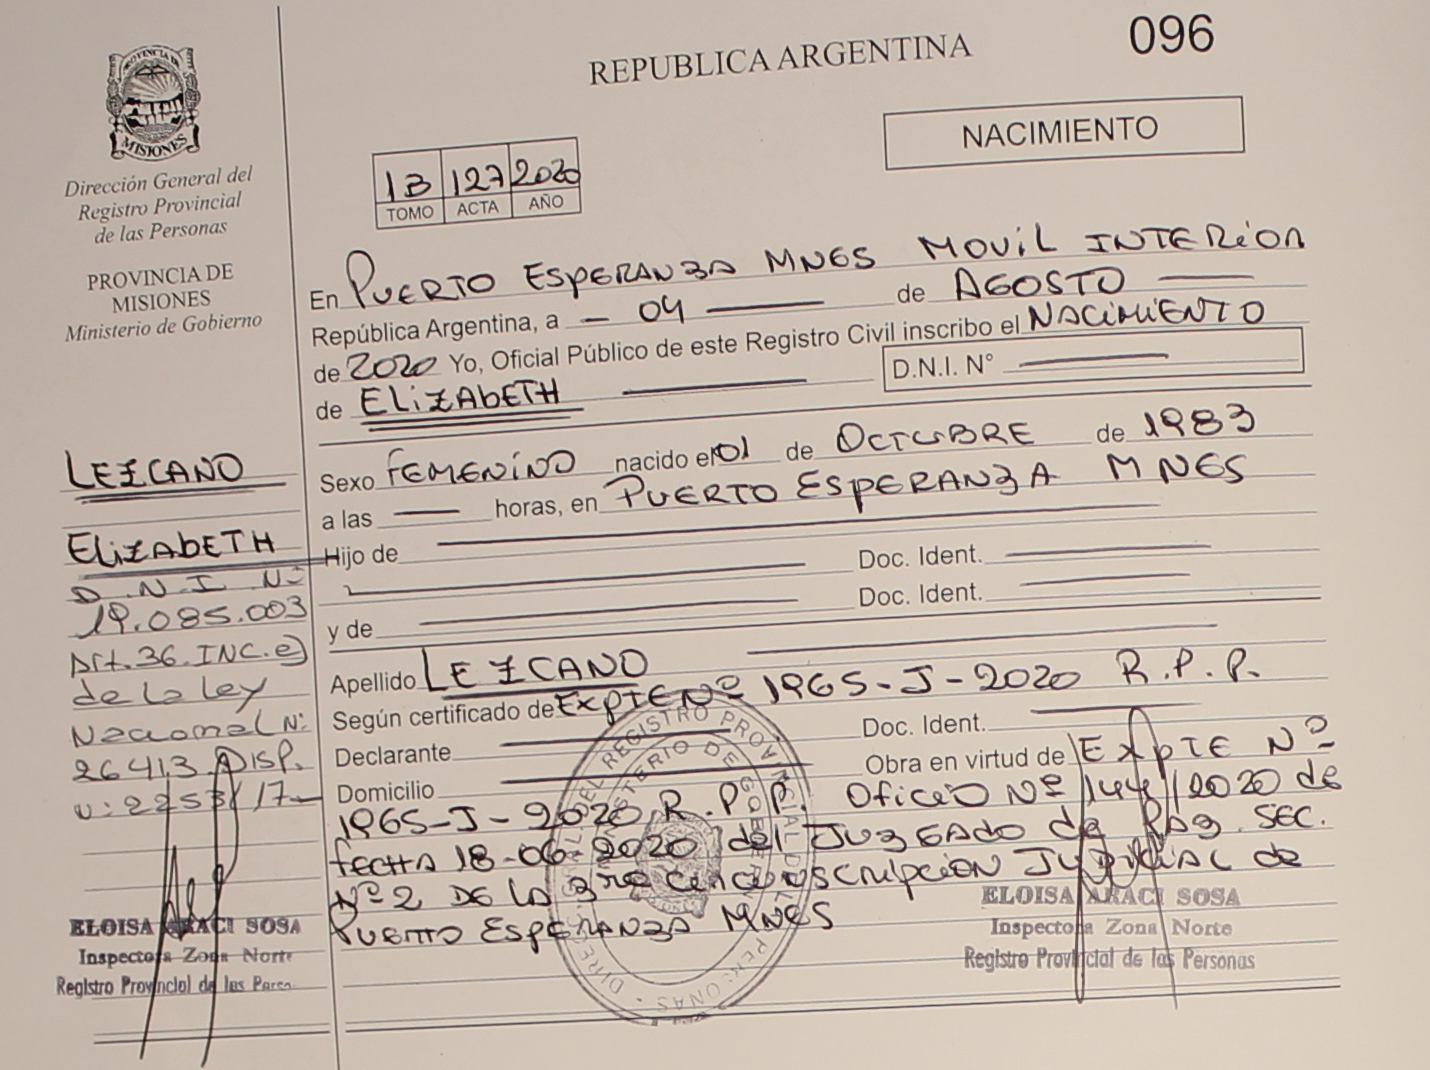 096
REPUBLICA ARGENTINA
NACIMIENTO
PROVINCIA DE
MISIONES
Dirección General del
Registro Provincial
de las Personas
PROVINCIA DE
MISIONES
Ministerio de Gobierno
1B 127 2020
TOMO ACTA AÑO
En PUERTO ESPERANZA MNES MOVIL INTERIOR
República Argentina, a - 04 de AGOSTO
de 2020 Yo, Oficial Público de este Registro Civil inscribo el NACIMIENTO
de ELIZABETH D.N.I. N°
Sexo FEMENINO nacido el 01 de OCTUBRE de 1983
a las horas, en PUERTO ESPERANZA MNES
Hijo de
Doc. Ident.
y de Doc. Ident.
Apellido LEZCANO
Según certificado de EXPTE Nº 1965-J-2020 R.P.P.
Declarante Doc. Ident.
Domicilio Obra en virtud de EXPTE Nº
1965-J-2020 R.P.P. Oficio Nº 144/2020 de
fecha 18-06-2020 del JUZGADO de Paz. SEC.
Nº 2 DE LA 3ra circunscripción Judicial de
Puerto Esperanza MNES
LEZCANO
ELIZABETH
D.N.I. Nº
19.085.003
Art. 36. INC. e)
de la ley
Nacional Nº
26413 DISP.
2253/17
ELOISA ARACI SOSA
Inspectora Zona Norte
Registro Provincial de las Personas
ELOISA ARACI SOSA
Inspectora Zona Norte
Registro Provincial de las Personas